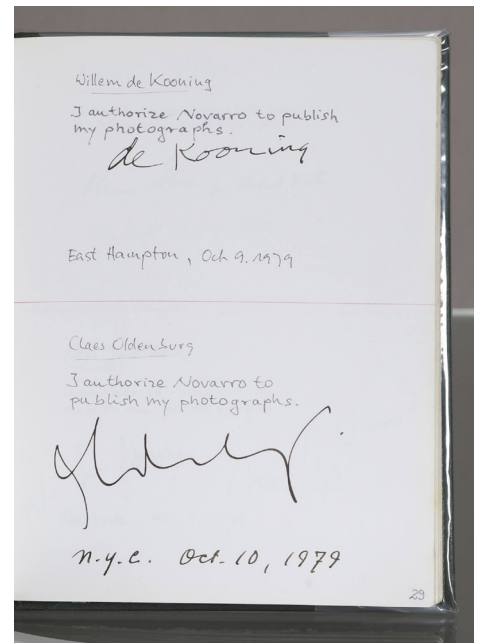 Willem de Kooning
I authorize Novarro to publish
my photographs.
de Kooning
East Hampton, Oct 9. 1979
Claes Oldenburg
I authorize Novarro to
publish my photographs.
N.Y.C. Oct. 10, 1979
29